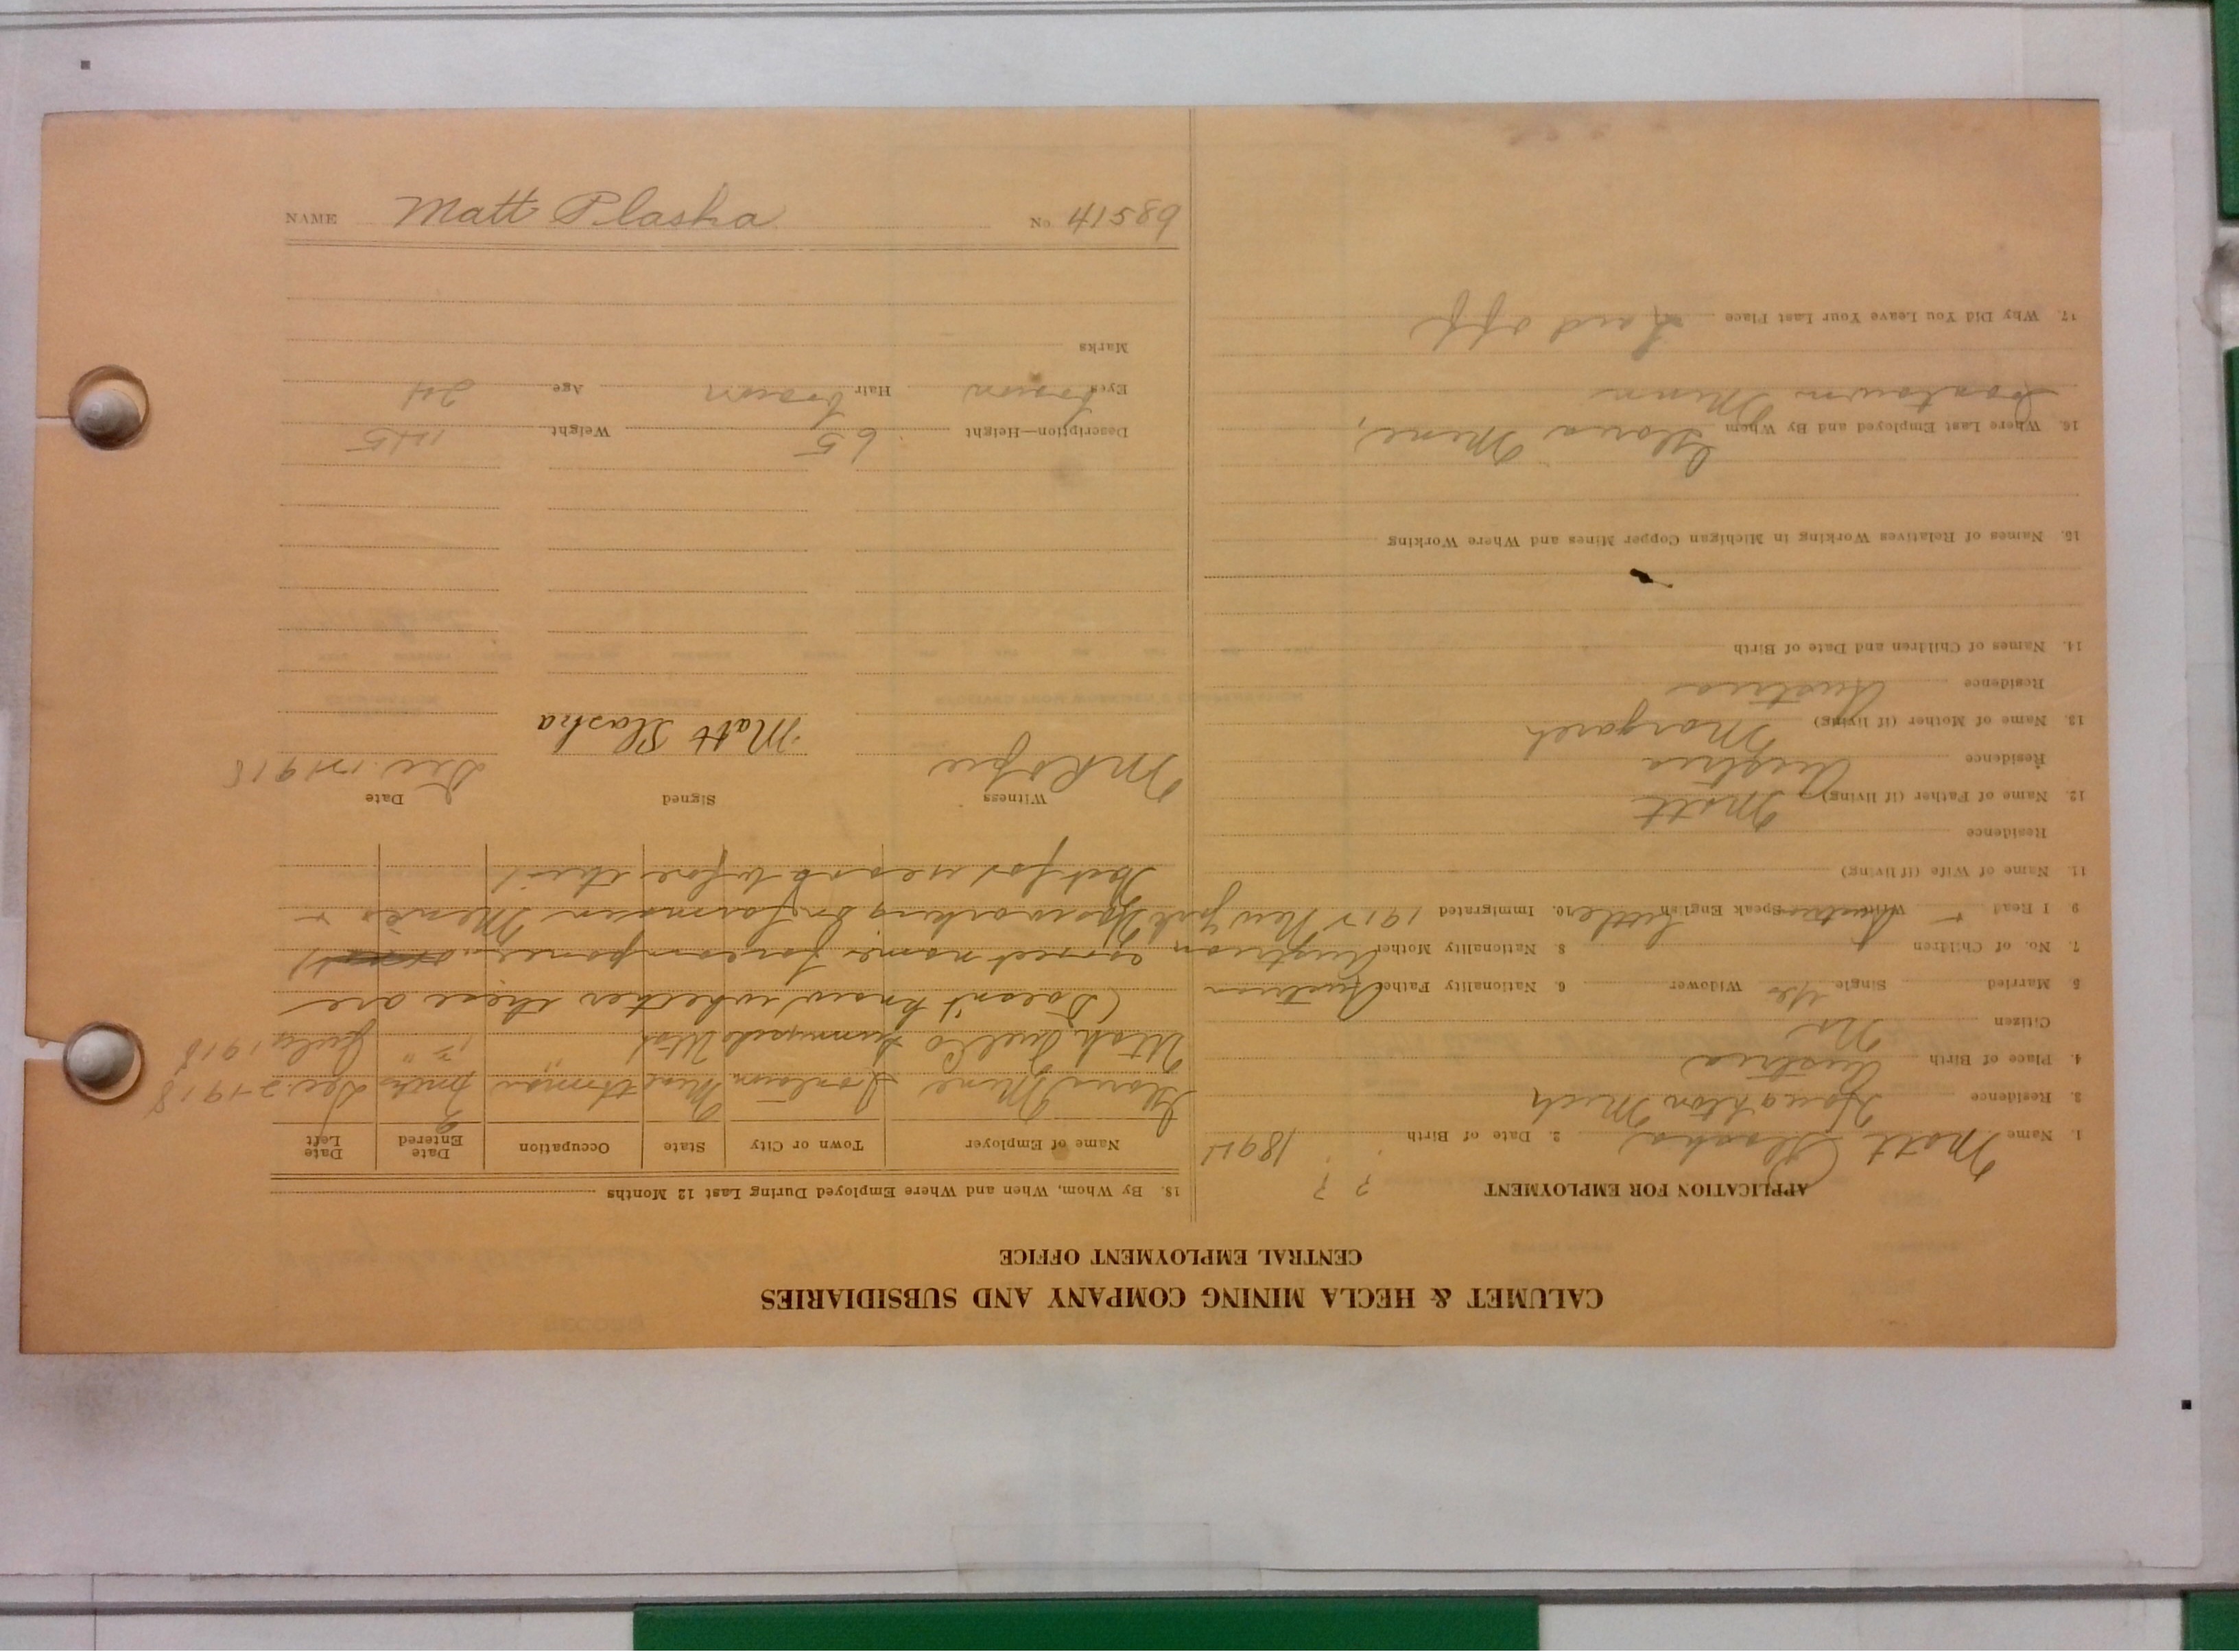 CALUMET & HECLA MINING COMPANY AND SUBSIDIARIES
CENTRAL EMPLOYMENT OFFICE
APPLICATION FOR EMPLOYMENT
1. Name Matt Plasha 2. Date of Birth ? ? 1894
3. Residence Houghton Mich
4. Place of Birth Austria
Citizen No
5 Married Single Yes Widower 6. Nationality Father Austrian
7. No. of Children 8 Nationality Mother Austrian
9 I Read Write Speak English Little 10. Immigrated New York
11. Name of Wife (if living)
Residence
12. Name of Father (if living) Matt
Residence Austria
13. Name of Mother (if living) Margareh
Residence Austria
14. Names of Children and Date of Birth
15. Names of Relatives Working in Michigan Copper Mines and Where Working
16. Where Last Employed and By Whom Mine,
Minn
17. Why Did You Leave Your Last Place Laid off
18. By Whom, When and Where Employed During Last 12 Months
Name of Employer Town or City State Occupation Date Entered Date Left
Mine Minn Dec 2-1918
Utah Fuel Co Utah " July 1918
(Doesn't know whether these are
correct names for company
working in Mines
for years before this)
Witness Signed Date
Matt Plasha Dec 1918
Description—Height 65 Weight 145
Eyes brown Hair brown Age 24
Marks
NAME Matt Plasha No. 41589